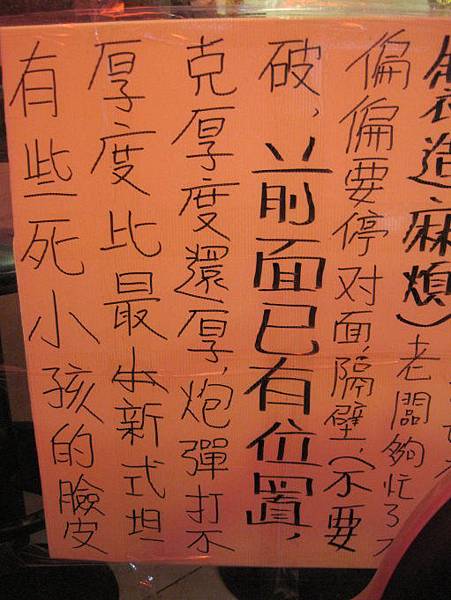 有些死小孩的臉皮
厚度比最新式坦
克厚度還厚,炮彈打不
破,前面已有位置,
偏偏要停对面,隔壁,(不要
製造麻煩)老闆夠忙了